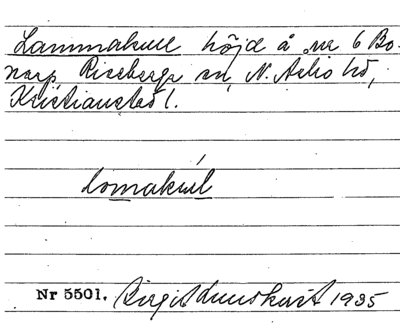 Lammakull höjd å nr 6 Bo-
narp Riseberga sn, N. Åsbo hd,
Kristianstad l.
lomakúl
Nr 5501. Birgit 1935